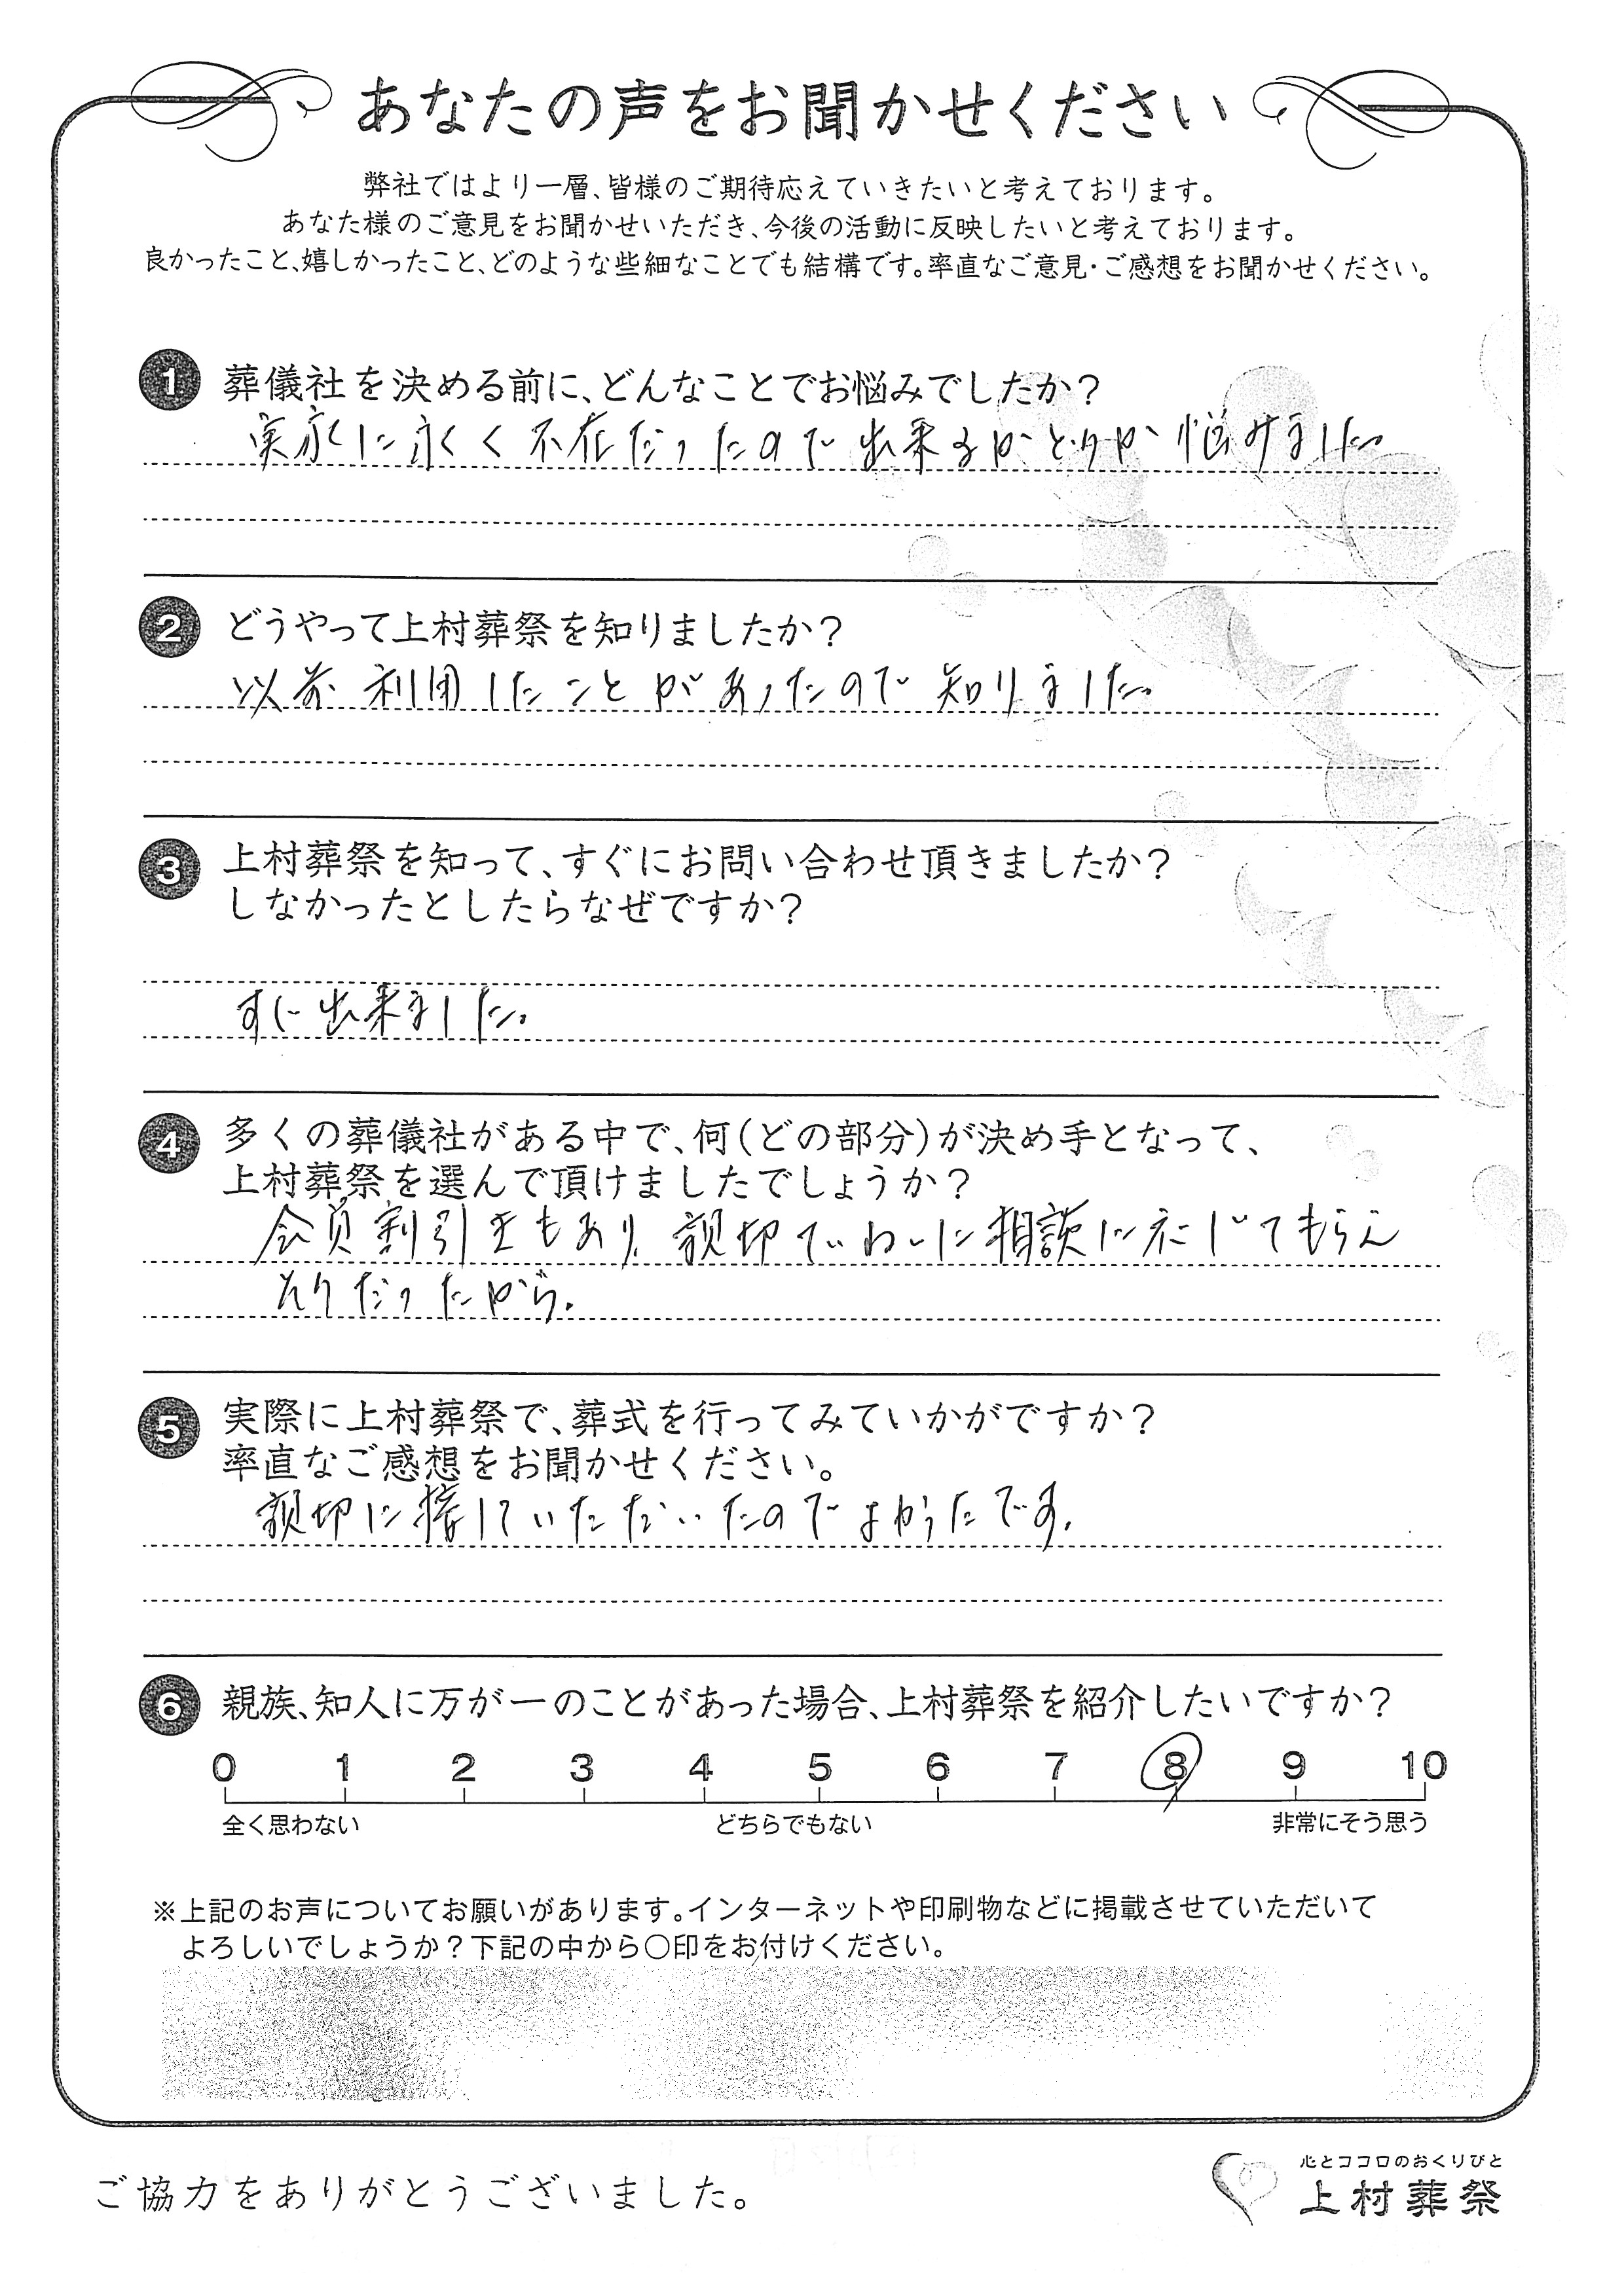 あなたの声をお聞かせください
弊社ではより一層、皆様のご期待応えていきたいと考えております。
あなた様のご意見をお聞かせいただき、今後の活動に反映したいと考えております。
良かったこと、嬉しかったこと、どのような些細なことでも結構です。率直なご意見・ご感想をお聞かせください。
1 葬儀社を決める前に、どんなことでお悩みでしたか？
実家に永く不在だったので出来るかどうか悩みました
2 どうやって上村葬祭を知りましたか？
以前利用したことがあったので知りました。
3 上村葬祭を知って、すぐにお問い合わせ頂きましたか？
しなかったとしたらなぜですか？
出来ました。
4 多くの葬儀社がある中で、何（どの部分）が決め手となって、
上村葬祭を選んで頂けましたでしょうか？
会員割引きもあり、親切ていねいに相談に応じてもらえ
そうだったから。
5 実際に上村葬祭で、葬式を行ってみていかがですか？
率直なご感想をお聞かせください。
親切に接していただいたのでよかったです。
6 親族、知人に万が一のことがあった場合、上村葬祭を紹介したいですか？
0 1 2 3 4 5 6 7 8 9 10
全く思わない どちらでもない 非常にそう思う
※上記のお声についてお願いがあります。インターネットや印刷物などに掲載させていただいて
よろしいでしょうか？下記の中から○印をお付けください。
心とココロのおくりびと
ご協力をありがとうございました。
上村葬祭